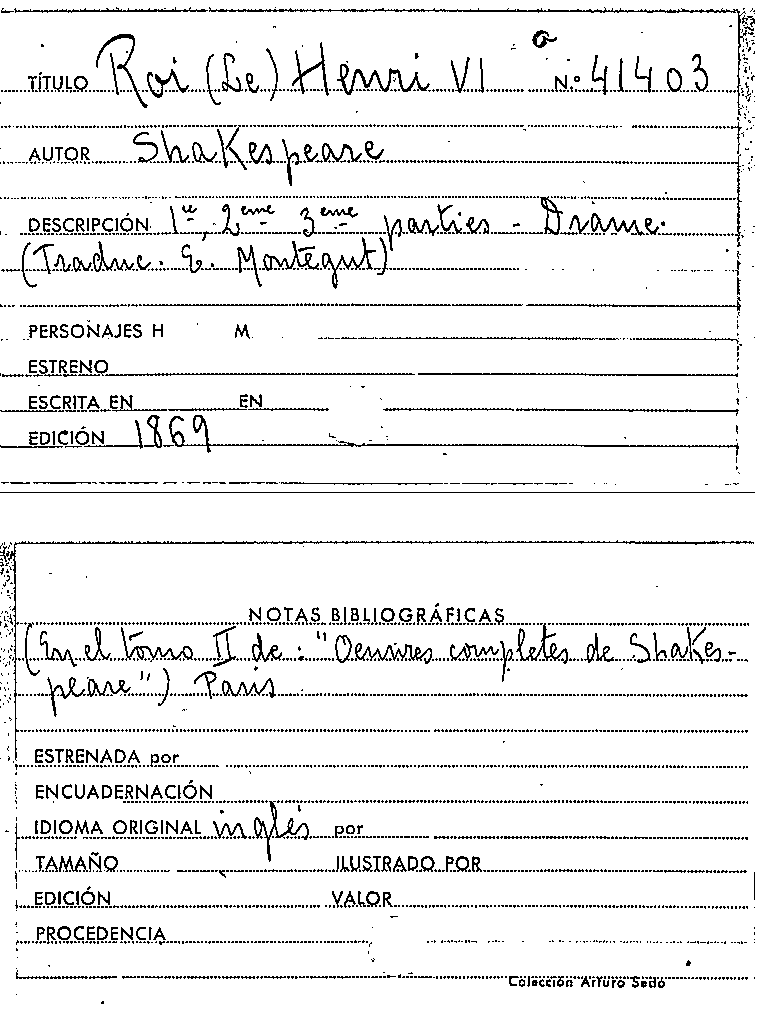 a
TÍTULO Roi (Le) Henri VI Nº 41403
AUTOR Shakespeare
DESCRIPCIÓN 1re, 2eme 3eme parties - Drame.
(Traduc. E. Montégut)
PERSONAJES H M
ESTRENO
ESCRITA EN EN
EDICIÓN 1869
NOTAS BIBLIOGRÁFICAS
(En el tomo II de: "Oeuvres completes de Shakes-
peare") Paris
ESTRENADA por
ENCUADERNACIÓN
IDIOMA ORIGINAL inglés por
TAMAÑO ILUSTRADO POR
EDICIÓN VALOR
PROCEDENCIA
Colección Arturo Sedó